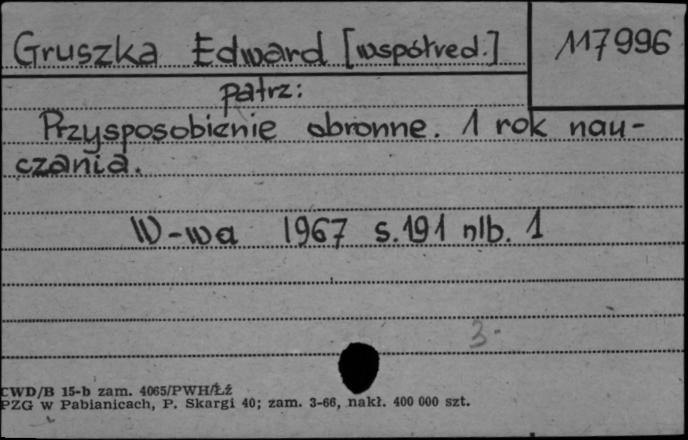 Gruszka Edward [współred.]
117996
patrz:
Przysposobienie obronne. 1 rok nau-
czania.
W-wa 1967 s.191 nlb. 1
3-
CWD/B 15-b zam. 4065/PWH/Łź
PZG w Pabianicach, P. Skargi 40; zam. 3-66, nakł. 400 000 szt.